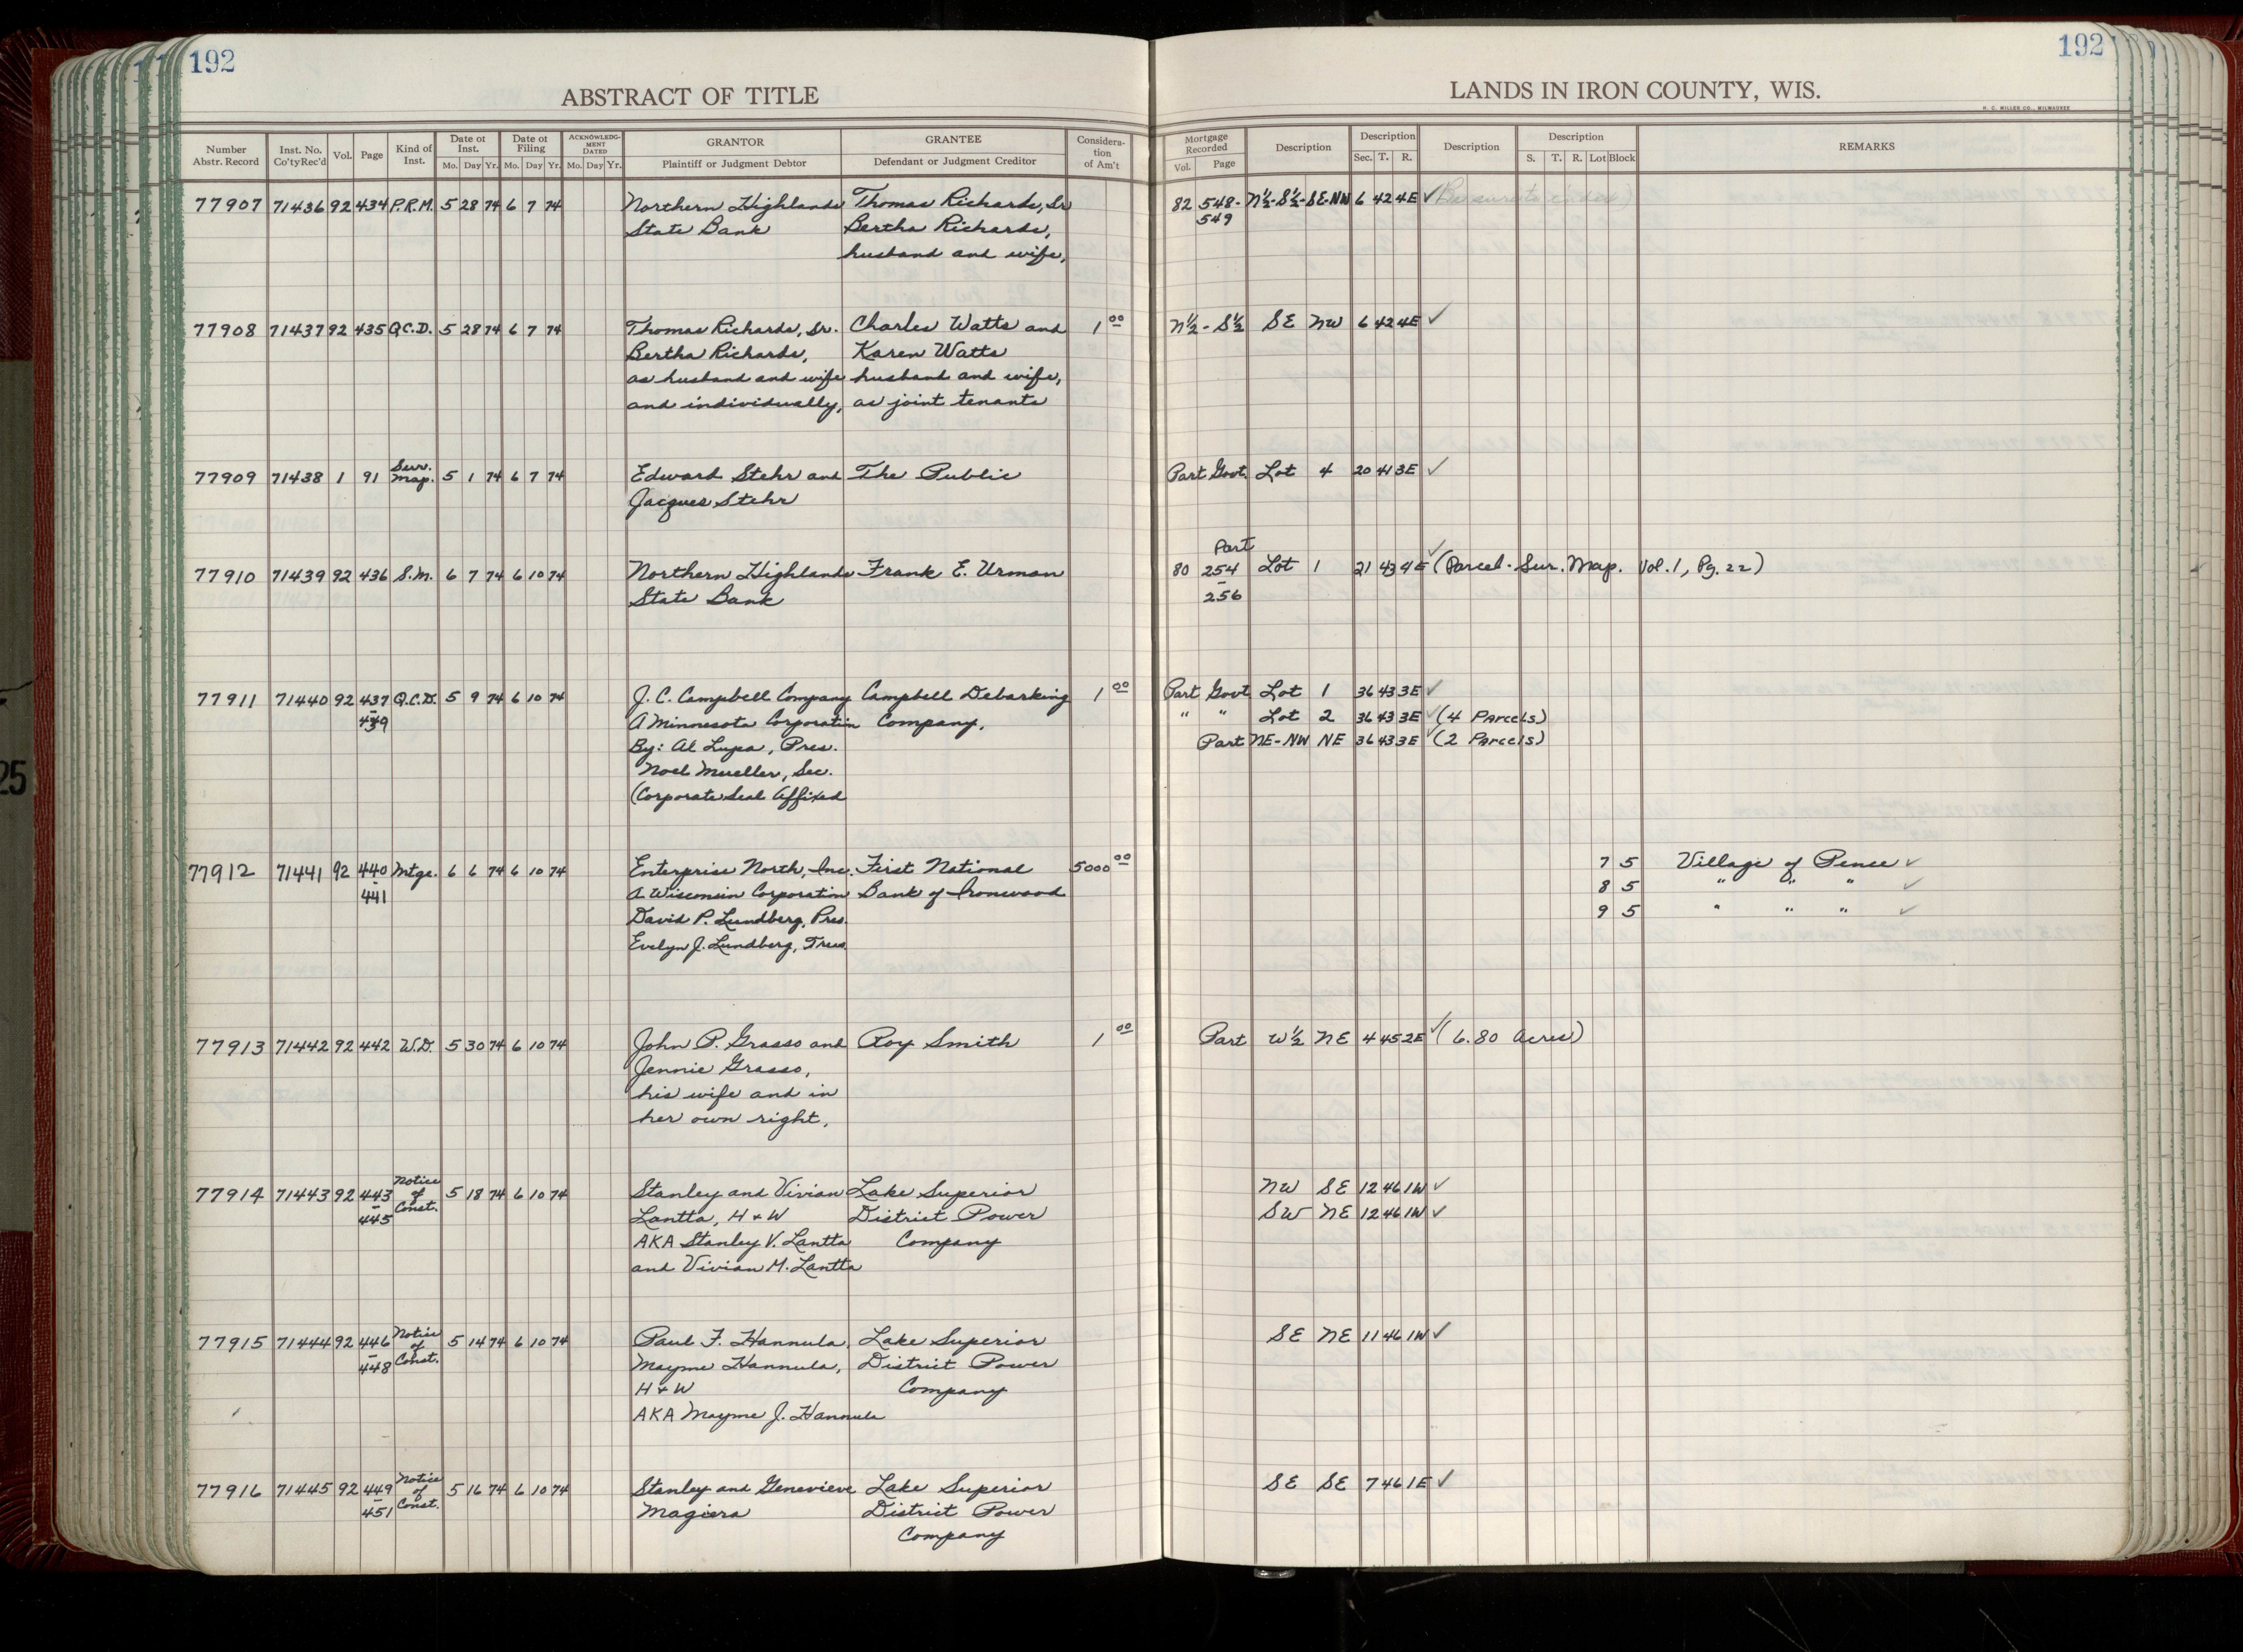 192
192
ABSTRACT OF TITLE
LANDS IN IRON COUNTY, WIS.
H. C. MILLER CO., MILWAUKEE
Number Abstr. Record | Inst. No. Co'ty Rec'd | Vol. | Page | Kind of Inst. | Date of Inst. Mo. Day Yr. | Date of Filing Mo. Day Yr. | ACKNOWLEDGMENT DATED Mo. Day Yr. | GRANTOR Plaintiff or Judgment Debtor | GRANTEE Defendant or Judgment Creditor | Consideration of Am't | Mortgage Recorded Vol. Page | Description | Description Sec. T. R. | Description | Description S. T. R. Lot Block | REMARKS
77907 71436 92 434 P.R.M. 5 28 74 6 7 74 Northern Highlands Thomas Richards, Sr. 82 548- N½-S½-SE-NW 6 42 4E ✓
State Bank Bertha Richards, 549
husband and wife,
77908 71437 92 435 Q.C.D. 5 28 74 6 7 74 Thomas Richards, Sr. Charles Watts and 1 00 N½-S½ SE NW 6 42 4E ✓
Bertha Richards, Karen Watts
as husband and wife husband and wife,
and individually, as joint tenants
77909 71438 1 91 Surv. Map. 5 1 74 6 7 74 Edward Stehr and The Public Part Govt. Lot 4 20 41 3E ✓
Jacques Stehr
Part
77910 71439 92 436 S.M. 6 7 74 6 10 74 Northern Highlands Frank E. Urman 80 254 Lot 1 21 43 4E ✓ (Parcel - Sur. Map. Vol. 1, Pg. 22)
State Bank - 256
77911 71440 92 437 Q.C.D. 5 9 74 6 10 74 J. C. Campbell Company Campbell Debarking 1 00 Part Govt Lot 1 36 43 3E ✓
- 439 A Minnesota Corporation Company. " " Lot 2 36 43 3E ✓ (4 Parcels)
By: Al Lupa, Pres. Part NE-NW NE 36 43 3E ✓ (2 Parcels)
Noel Mueller, Sec.
(Corporate Seal Affixed
77912 71441 92 440 Mtge. 6 6 74 6 10 74 Enterprise North, Inc. First National 5000 00 7 5 Village of Pence ✓
- 441 A Wisconsin Corporation Bank of Ironwood 8 5 " " " ✓
David P. Lundberg, Pres. 9 5 " " " ✓
Evelyn J. Lundberg, Treas.
77913 71442 92 442 W.D. 5 30 74 6 10 74 John P. Grasso and Roy Smith 1 00 Part W½ NE 4 45 2E ✓ (6.80 Acres)
Jennie Grasso,
his wife and in
her own right,
77914 71443 92 443 Notice of Const. 5 18 74 6 10 74 Stanley and Vivian Lake Superior NW SE 12 46 1W ✓
- 445 Lantta, H + W District Power SW NE 12 46 1W ✓
AKA Stanley V. Lantta Company
and Vivian M. Lantta
77915 71444 92 446 Notice of Const. 5 14 74 6 10 74 Paul F. Hannula, Lake Superior SE NE 11 46 1W ✓
- 448 Mayme Hannula, District Power
H + W Company
AKA Mayme J. Hannula
77916 71445 92 449 Notice of Const. 5 16 74 6 10 74 Stanley and Genevieve Lake Superior SE SE 7 46 1E ✓
- 451 Magiera District Power
Company
25